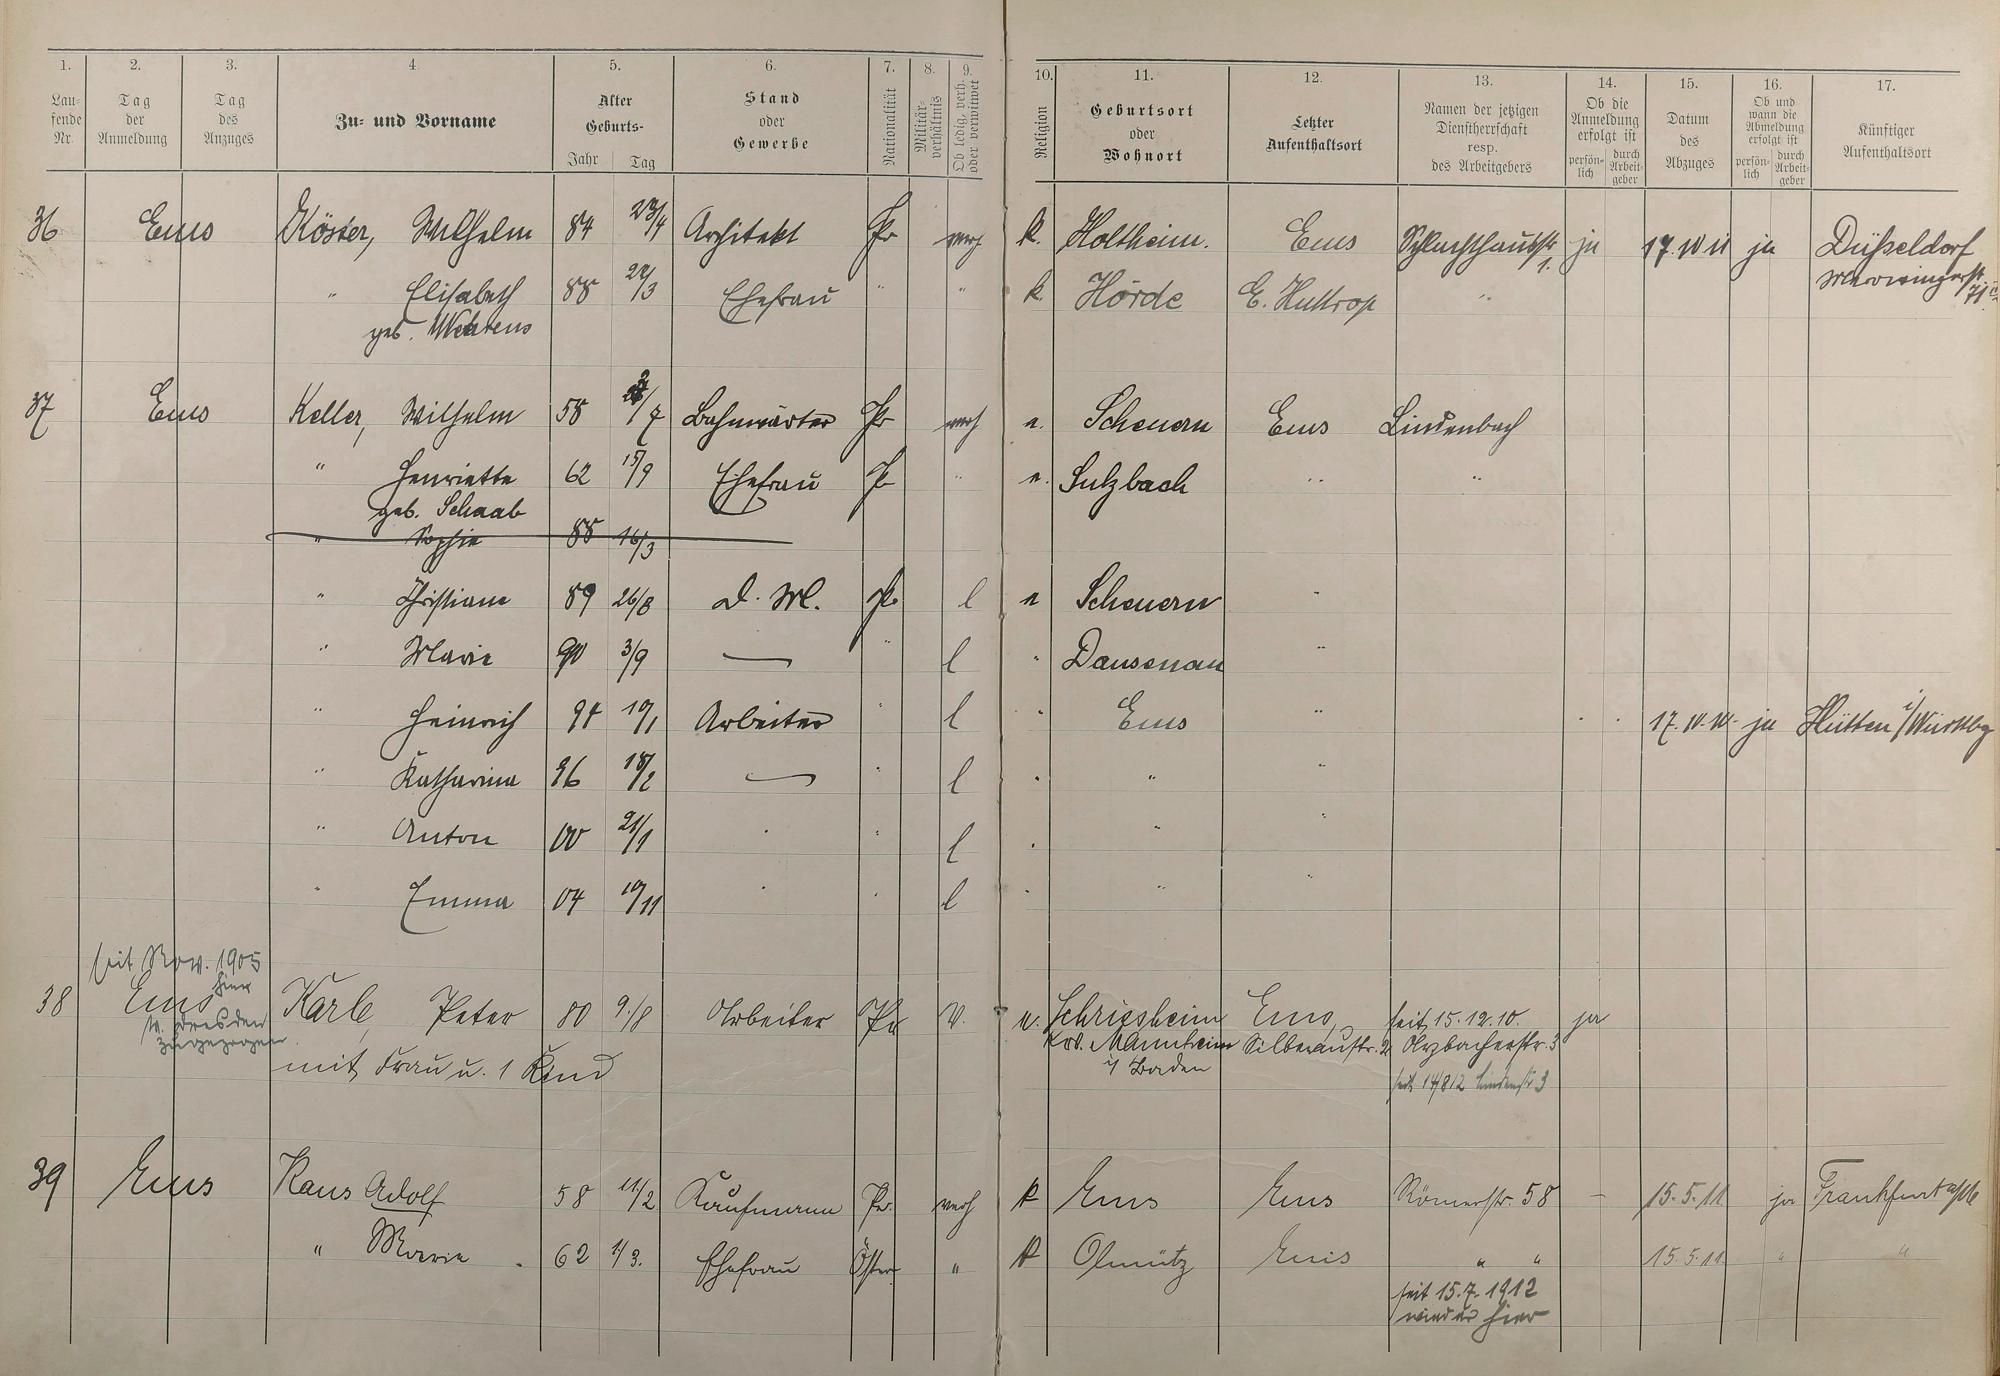 1. 2. 3. 4 5. 6. 7. 8. 9. 10. 11. 12. 13. 14. 15. 16. 17.
Lau-
fende
Nr.
Tag
der
Anmeldung
Tag
des
Anzuges
Zu- und Vorname
Alter
Geburts-
Jahr Tag
Stand
oder
Gewerbe
Nationalität
Militär-
verhältnis
Ob ledig, verh.
oder verwitwet
Religion
Geburtsort
oder
Wohnort
Letzter
Aufenthaltsort
Namen der jetzigen
Dienstherrschaft
resp.
des Arbeitgebers
Ob die
Anmeldung
erfolgt ist
persön-
lich
durch
Arbeit-
geber
Datum
des
Abzuges
Ob und
wann die
Abmeldung
erfolgt ist
persön-
lich
durch
Arbeit-
geber
Künftiger
Aufenthaltsort
36 Ems Köster, Wilhelm 84 23/4 Architekt Pr verh k. Holtheim. Ems Schlachthausstr 1. ja 17. ja Düsseldorf
" Elisabeth 88 /3 Ehefrau " " k. Hörde E. Huttrop " 71
geb.
37 Ems Keller, Wilhelm 58 /7 Bahnwärter Pr verh e. Scheuern Ems Lindenbach
" Henriette 62 15/9 Ehefrau Pr " e. Sulzbach " "
geb. Schaab
" Sophie 88 16/3
" Christiane 89 26/8 D. M. Pr l e Scheuern "
" Marie 90 3/9 — " l " Dausenau "
" Heinrich 94 10/1 Arbeiter " l " Ems " 17. ja Hütten i/Württbg
" Katharina 96 18/2 — " l " " "
" Anton 00 21/1 " " l " " "
" Emma 04 10/11 " " l " " "
seit Nov. 1905
hier
38 Ems Karle, Peter 80 9./8 Arbeiter Pr V. Schriesheim Ems, seit 15.12.10. ja
v. Dresden
zugezogen
Mannheim Silberaustr. 2 Arzbacherstr. 3
mit Frau u. 1 Kind
i/ Baden
seit 14/8 12 Lindenstr 3
39 Ems Kaus Adolf 58 11./2 Kaufmann Pr. verh k Ems Ems Römerstr. 58 — 15.5.11 ja Frankfurt a/M
" Marie 62 1/3. Ehefrau Öster " k Olmütz Ems " " 15.5.11 " "
seit 15.7.1912
wieder hier